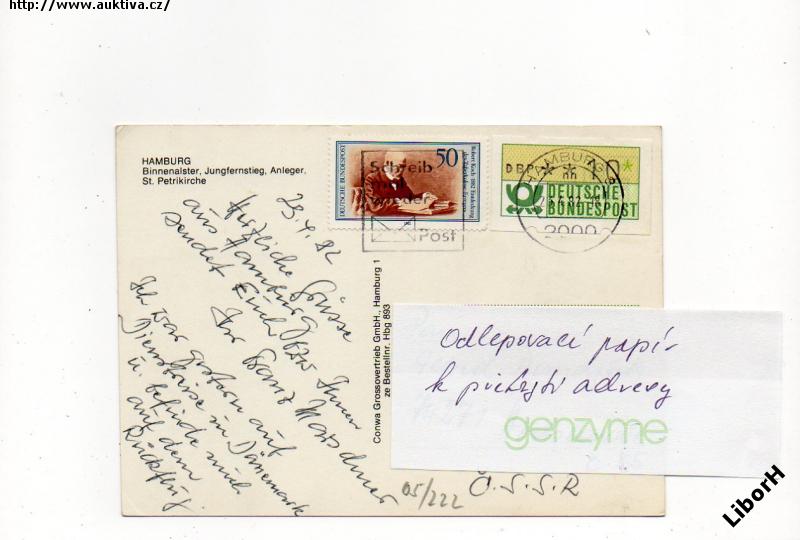 http://www.auktiva.cz/
HAMBURG
Binnenalster, Jungfernstieg, Anleger,
St. Petrikirche
DEUTSCHE BUNDESPOST
50
Robert Koch 1882 Entdeckung
des Tuberkulose-Erregers
Schreib
mal
wieder
Post
DBP
HAMBURG
2000
DEUTSCHE
BUNDESPOST
23.4.82
Herzliche Grüsse
aus Hamburg
sendet Euch bzw Ihnen
Ihr Franz
Ich war gestern auf
Dienstreise in Dänemark
u. befinde mich
auf dem
Rückflug.
Conwa Grossovertrieb GmbH., Hamburg 1
ze Bestellnr. Hbg 893
Odlepovací papír
k přelepení adresy
genzyme
Č.S.S.R
05/222
LiborH